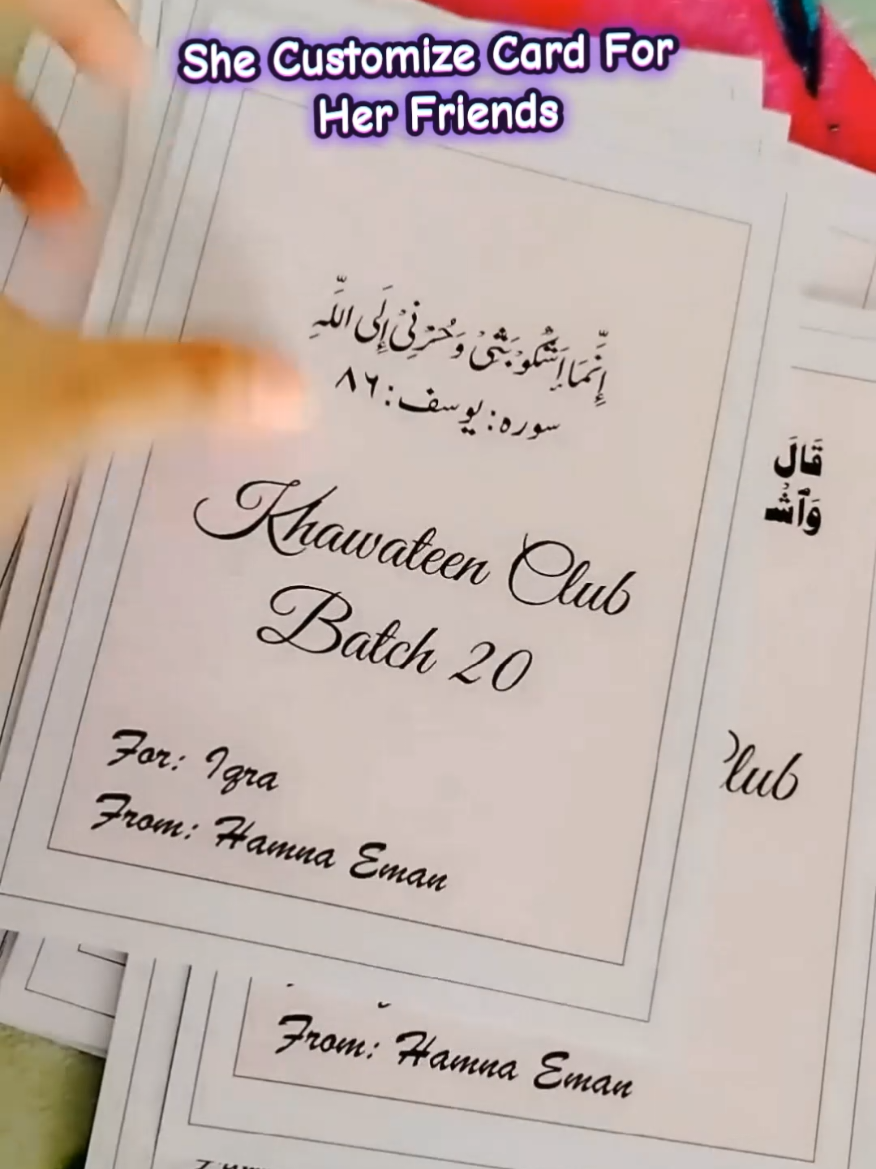 She Customize Card For
Her Friends
إِنَّمَا إَشْكُوْ بَثِّىْ وَحُزْنِىْ إِلَى اللّٰهِ
سوره: يوسف: ٨٦
Khawateen Club
Batch 20
For: Iqra
From: Hamna Eman
قَالَ
lub
From: Hamna Eman